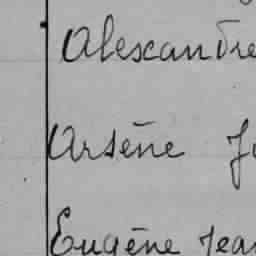 Alexandre
Arsène
Eugène Jean